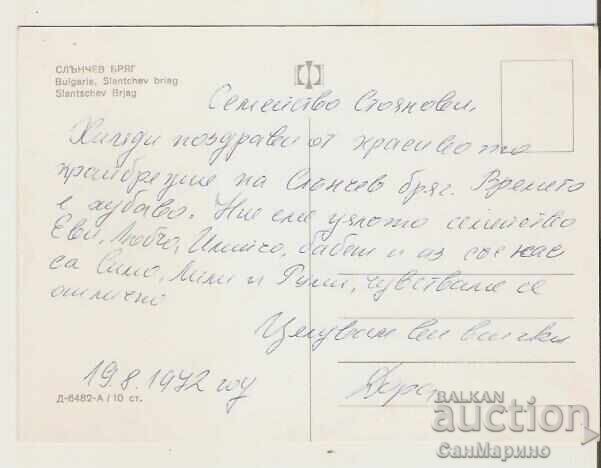 СЛЪНЧЕВ БРЯГ
Bulgarie, Slantchev briag
Slantschev Brjag
Семейство Стоянови,
Хиляди поздрави от красивото
крайбрежие на Слънчев бряг. Времето
е хубаво. Ние сме цялото семейство
Еви, Любчо, Илийчо, бабеш и аз със нас
са Симо, Лили и Руми, чувстваме се
отлично
Целувам ви всички
19.8.1972 год
Дора
Д-6482-А / 10 ст.
BALKAN
auction
СанМарино